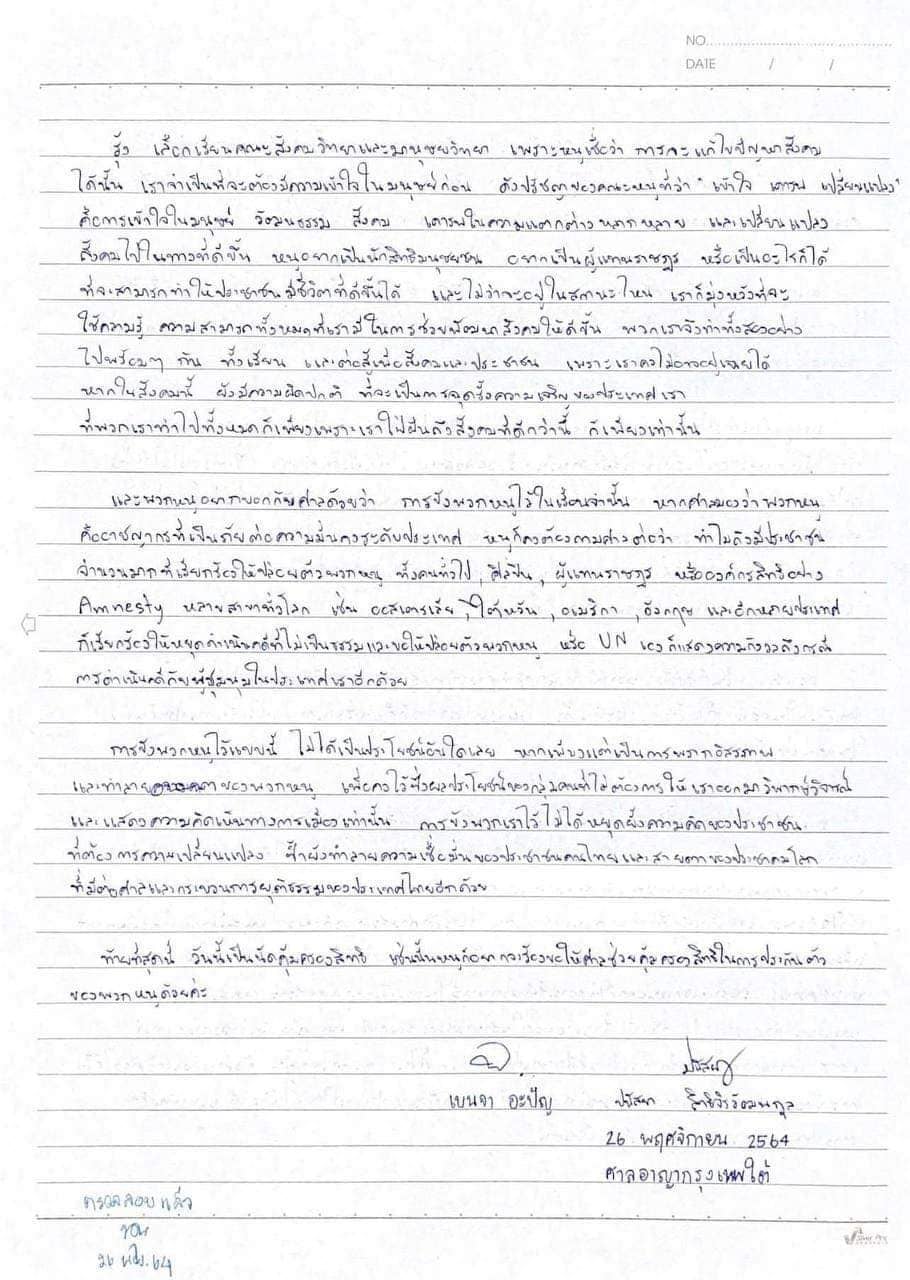 NO.
DATE / /
รุ้ง เลือกเรียนคณะสังคมวิทยาและมานุษยวิทยา เพราะหนูเชื่อว่า การจะแก้ไขปัญหาสังคม
ได้นั้น เราจำเป็นที่จะต้องมีความเข้าใจในมนุษย์ก่อน ดังปรัชญาของคณะหนูที่ว่า "เข้าใจ เคารพ เปลี่ยนแปลง"
คือการเข้าใจในมนุษย์ วัฒนธรรม สังคม เคารพในความแตกต่างหลากหลาย และเปลี่ยนแปลง
สังคมไปในทางที่ดีขึ้น หนูอยากเป็นนักสิทธิมนุษยชน อยากเป็นผู้แทนราษฎร หรือเป็นอะไรก็ได้
ที่จะสามารถทำให้ประชาชนมีชีวิตที่ดีขึ้นได้ และไม่ว่าจะอยู่ในสถานะไหน เราก็มุ่งหวังที่จะ
ใช้ความรู้ ความสามารถทั้งหมดที่เรามีในการช่วยพัฒนาสังคมให้ดีขึ้น พวกเราจึงทำทั้งสองอย่าง
ไปพร้อมๆ กัน ทั้งเรียน และต่อสู้เพื่อสังคมและประชาชน เพราะเราคงไม่อาจอยู่เฉยได้
หากในสังคมนี้ ยังมีความผิดปกติ ที่จะเป็นการฉุดรั้งความเจริญของประเทศเรา
ที่พวกเราทำไปทั้งหมดก็เพียงเพราะเราใฝ่ฝันถึงสังคมที่ดีกว่านี้ ก็เพียงเท่านั้น
และพวกหนูอยากบอกกับศาลด้วยว่า การขังพวกหนูไว้ในเรือนจำนั้น หากศาลมองว่าพวกหนู
คืออาชญากรที่เป็นภัยต่อความมั่นคงระดับประเทศ หนูก็คงต้องถามศาลต่อว่า ทำไมถึงมีประชาชน
จำนวนมากที่เรียกร้องให้ปล่อยตัวพวกหนู ทั้งคนทั่วไป, ศิลปิน, ผู้แทนราษฎร หรือองค์กรสิทธิอย่าง
Amnesty หลายสาขาทั่วโลก เช่น ออสเตรเลีย, ไต้หวัน, อเมริกา, อังกฤษ และอีกหลายประเทศ
ก็เรียกร้องให้หยุดดำเนินคดีที่ไม่เป็นธรรมและขอให้ปล่อยตัวพวกหนู หรือ UN เองก็แสดงความกังวลถึงกรณี
การดำเนินคดีกับผู้ชุมนุมในประเทศเราอีกด้วย
การขังพวกหนูไว้แบบนี้ ไม่ได้เป็นประโยชน์อันใดเลย หากเพียงแต่เป็นการพรากอิสรภาพ
และทำลายอนาคตของพวกหนู เพื่อคงไว้ซึ่งผลประโยชน์ของกลุ่มคนที่ไม่ต้องการให้เราออกมาวิพากษ์วิจารณ์
และแสดงความคิดเห็นทางการเมืองเท่านั้น การขังพวกเราไว้ ไม่ได้หยุดยั้งความคิดของประชาชน
ที่ต้องการความเปลี่ยนแปลง ซ้ำยังทำลายความเชื่อมั่นของประชาชนคนไทยและสายตาของประชาคมโลก
ที่มีต่อศาลและกระบวนการยุติธรรมของประเทศไทยอีกด้วย
ท้ายที่สุดนี้ วันนี้เป็นนัดคุ้มครองสิทธิ เช่นนั้นหนูก็อยากจะร้องขอให้ศาลช่วยคุ้มครองสิทธิในการประกันตัว
ของพวกหนูด้วยค่ะ
ปนัสยา
เบนจา อะปัญ ปนัสยา สิทธิจิรวัฒนกุล
26 พฤศจิกายน 2564
ศาลอาญากรุงเทพใต้
ตรวจสอบแล้ว
26 พ.ย. 64